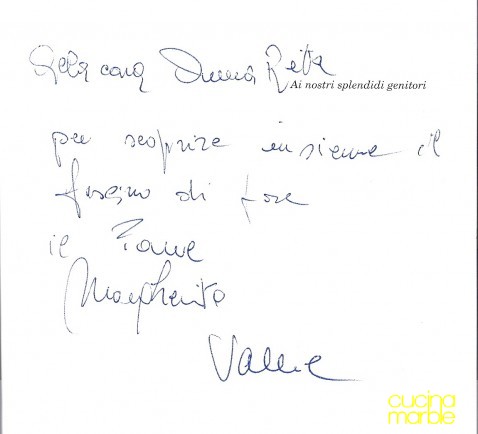 Alla cara Anna Rita
Ai nostri splendidi genitori
per scoprire insieme il
fascino di fare
il Pane
Margherita
cucina
marble